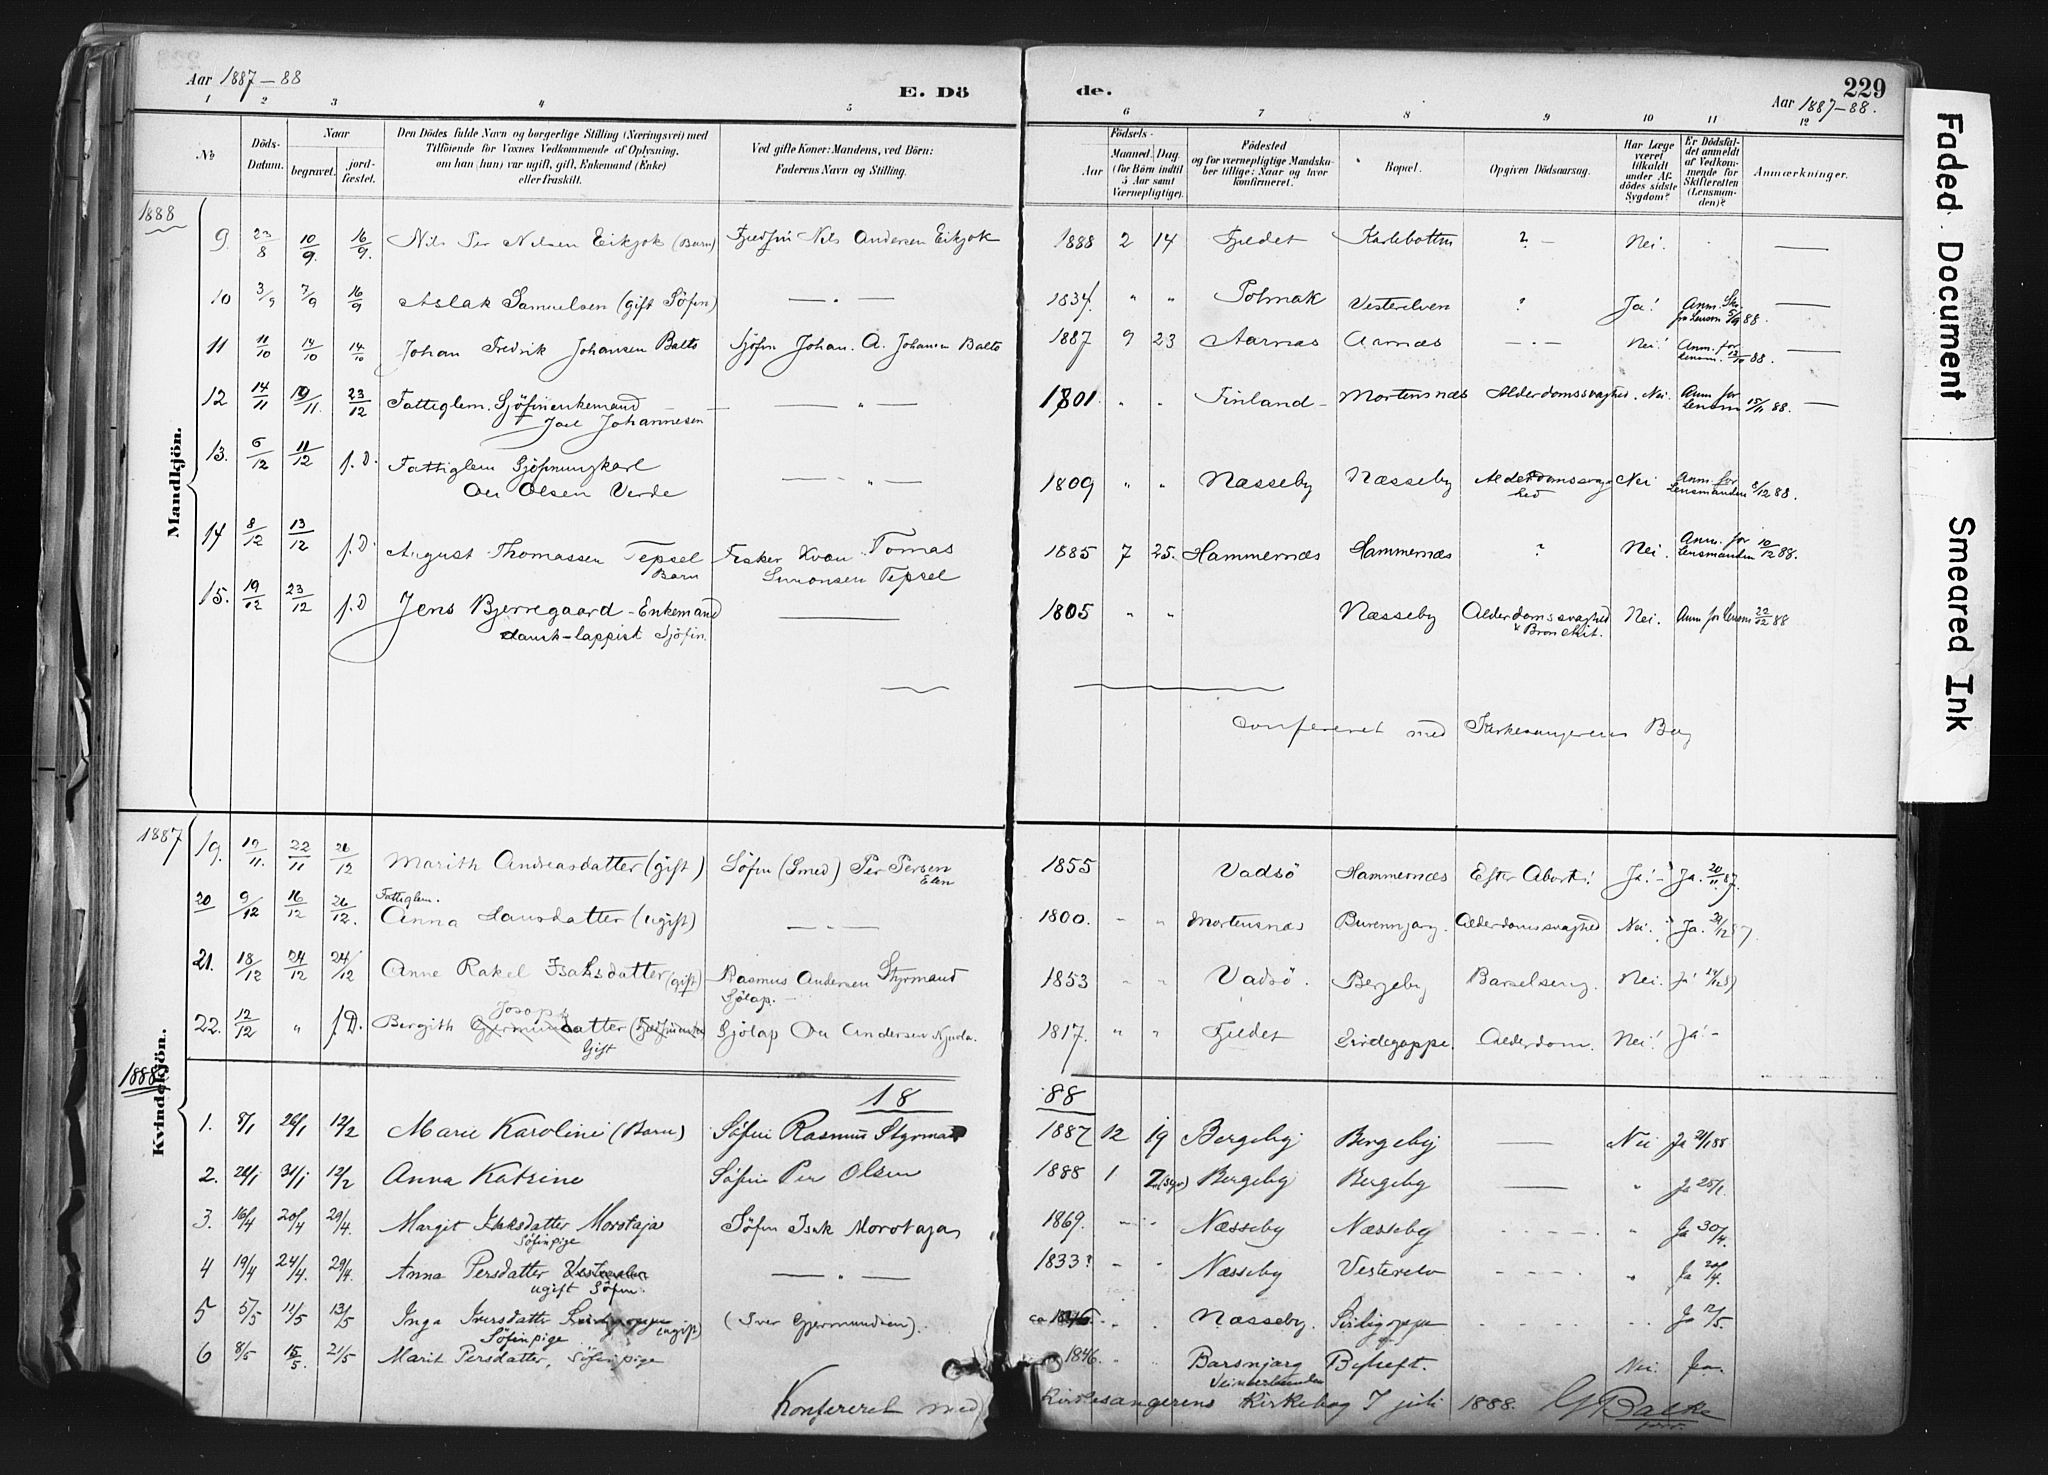 Aar 1887-88
E. Dö
de.
229
Aar 1887-88.
1 2 3 4 5 6 7 8 9 10 11 12
No
Döds-Datum.
Naar
begravet.
jord-fæstet.
Den Dödes fulde Navn og borgerlige Stilling (Næringsvei) med
Tilföiende for Voxnes Vedkommende af Oplysning,
om han (hun) var ugift, gift, Enkemand (Enke)
eller fraskilt.
Ved gifte Koner: Mandens, ved Börn:
Faderens Navn og Stilling.
Födsels-
Aar
Maaned. Dag
(for Börn indtil
5 Aar samt
Værnepligtige).
Födested
og for værnepligtige Mandska-
ber tillige: Naar og hvor
konfirmeret.
Bopæl.
Opgiven Dödsaarsag.
Har Læge
været
tilkaldt
under Af-
dödes sidste
Sygdom?
Er Dödsfal-
det anmeldt
af Vedkom-
mende for
Skifteretten
(Lensman-
den)?
Anmærkninger.
Mandkjön.
1888
9. 23/8 10/9. 16/9. Nils Per Nilsen Eikjok (Barn) Fjeldfin Nils Andersen Eikjok 1888 2 14 Fjeldet Karlebotten ? - Nei. —
10 3/9 7/9 16/9 Aslak Samuelsen (gift Söfin) — " — 1834. " " Polmak Vesterelven ? Ja! Anm. for Lensm 5/9 88 —
11 11/10 14/10 14/10 Johan Fredrik Johansen Balto Sjöfin Johan. A. Johansen Balto 1887 9 23 Aarnæs Arnæs — Nei! Anm. for Lensm. 13/10 88. —
12 14/11 19/11 23/12 Fattiglem. Sjöfinenkemand — " — 1801. " " Finland - Mortensnæs Alderdomssvaghed. Nei. Anm for Lensm 15/11 88. —
Joel Johannesen
13. 6/12 11/12 f.D. Fattiglem Sjöfinungkarl
Ou Olsen Verde — " — 1809 " " Næsseby Næsseby Alderdomssvaghed Nei Anm. for Lensmanden 8/12 88.
14 8/12 13/12 f.D. August Thomassen Tepsel Fisker Kvæn Tomas 1885 7 25. Hammernæs Hammernæs ? Nei. Anm. for Lensmanden 10/12 88.
Barn Simonsen Tepsel
15. 19/12 23/12 f.D Jens Bjerregaard - Enkemand — 1805 " " Næsseby Alderdomssvaghed Nei. Anm for Lensm 22/12 88
dansk-lappisk Sjöfin. & Bronckit.
Confereret med Kirkesangerens Bog
Kvindekjön.
1887
19. 22/11 26/12 Marith Andreasdatter (gift) Söfin (Smed) Per Persen 1855 Vadsö Hammernæs Efter Abort! Ja! - Ja. 20/11 87.
20 9/12 16/12 26/12. Fattiglem.
Anna Larsdatter (ugift) — " — 1800. - " Mortensnæs Burennjarg. Alderdomssvaghed Nei. Ja.
21. 18/12 24/12 24/12 Anne Rakel Isaksdatter (gift) Rasmus Andersen Styrmand 1853 " " Vadsö. Bergeby Barselseng. Nei.
Sjölap.
22. 12/12 " f.D. Bergith Josephsdatter Sjölap Ou Andersen Kjuda. 1817. " " Fjeldet Sirdegoppe. Alderdom. Nei! Ja! -
Gift
1888 18 88
1. 8/1 26/1 12/2 Marie Karoline (Barn) Söfin Rasmus Styrmand 1887 12 19 Bergeby Bergeby — Nei Ja 21/1 88
2. 24/1 31/1 12/2 Anna Katrine Söfin Per Olsen 1888 1 Bergeby Bergeby — " Ja 25/1.
3. 16/4 20/4 29/4. Margit Isaksdatter Morotaja Söfin Isak Morotaja 1869. Næsseby Næsseby - - - - " Ja 30/4.
Söfinpige
4 19/4 24/4. 29/4. Anna Persdatter — " — 1833? - " Næsseby Vesterelv - - - - " Ja 20/4.
ugift Söfin.
5 5/5 11/5 13/5 Inga Iversdatter (ugift) (Iver Gjermundsen). Næsseby. - - - - " Ja 12/5.
Söfinpige
6 8/5 15/5. 21/5 Marit Persdatter, Söfinpige 1846. " " Barsnjarg Nei.
Konfereret med Kirkesangerens Kirkebog 7 juli 1888. G Balke
Faded Document Smeared Ink